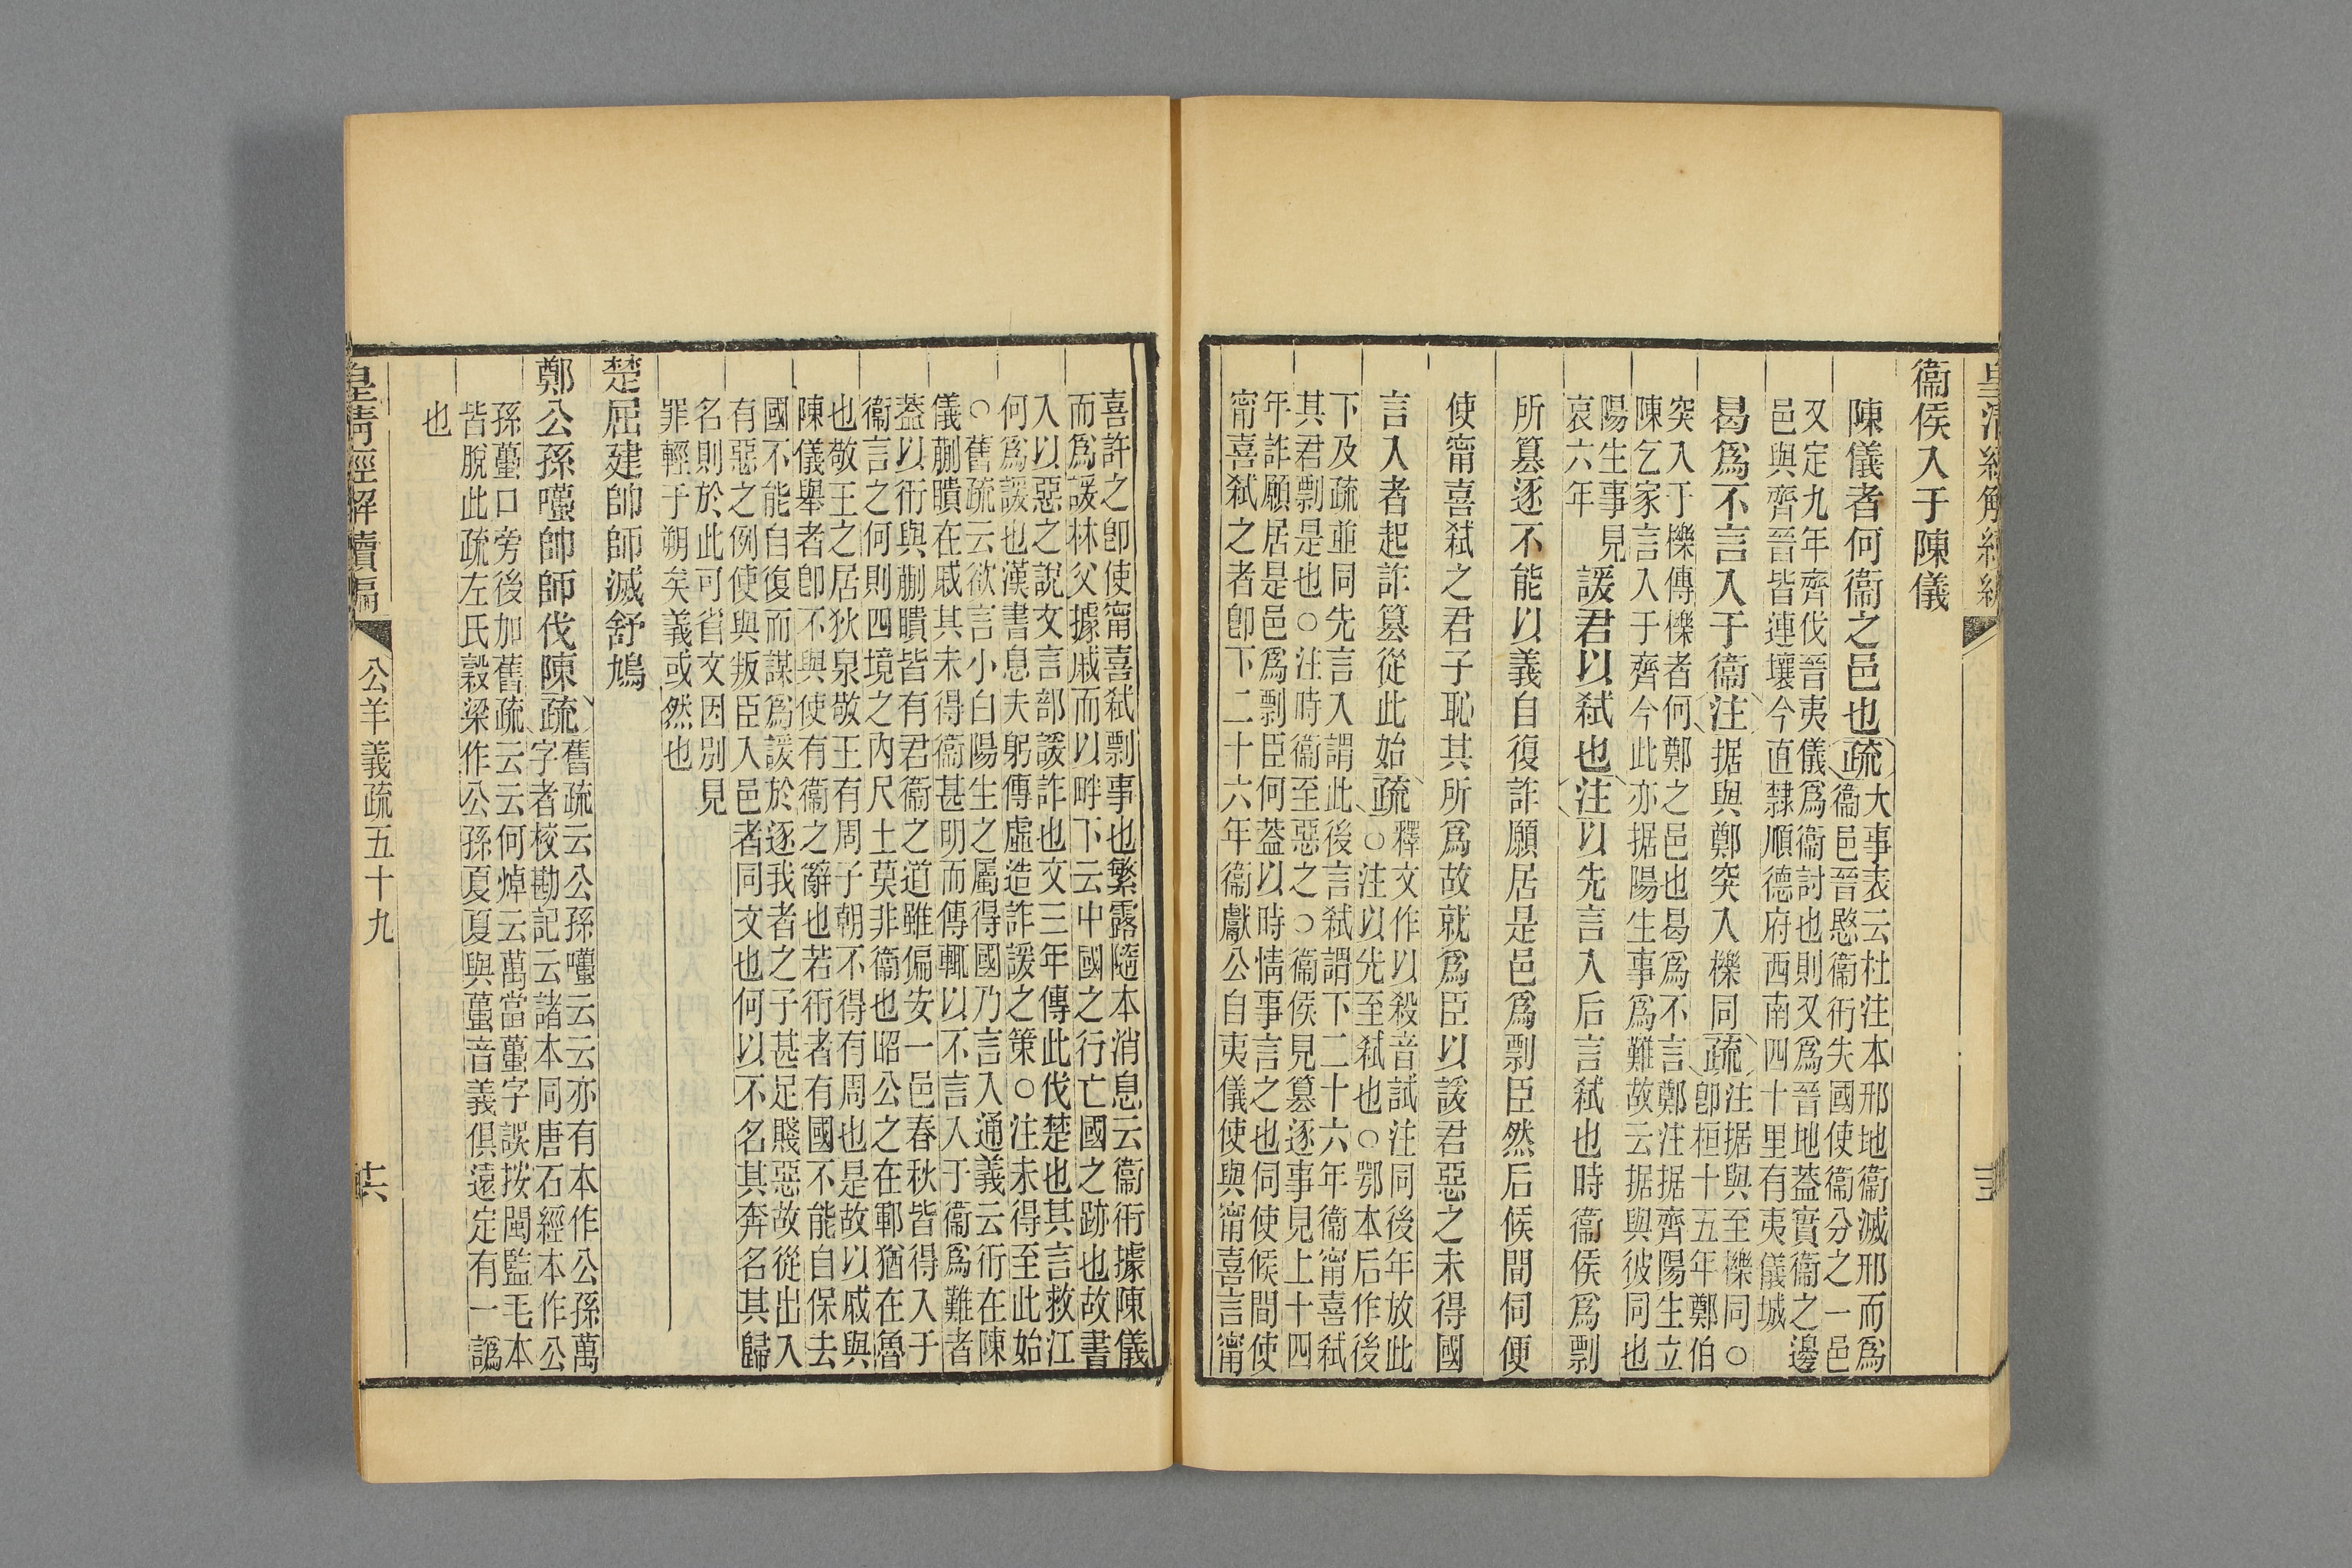 皇清經解續編
三
衞侯入于陳儀
陳儀者何衞之邑也疏
大事表云杜注本邢地衞滅邢而爲
衞邑晉愍衞衎失國使衞分之一邑
又定九年齊伐晉夷儀爲衞討也則又爲晉地蓋實衞之邊
邑與齊晉皆連壤今直隸順德府西南四十里有夷儀城
曷爲不言入于衞注据與鄭突入櫟同疏
注据與至櫟同○
卽桓十五年鄭伯
突入于櫟傳櫟者何鄭之邑也曷爲不言鄭注据齊陽生立
陳乞家言入于齊今此亦据陽生事爲難故云据與彼同也
陽生事見
哀六年
諼君以弒也注以先言入后言弒也時衞侯爲剽
所篡逐不能以義自復詐願居是邑爲剽臣然后候間伺便
使甯喜弒之君子恥其所爲故就爲臣以諼君惡之未得國
言入者起詐篡從此始疏
釋文作以殺音試注同後年放此
○注以先至弒也○鄂本后作後
下及疏並同先言入謂此後言弒謂下二十六年衞甯喜弒
其君剽是也○注時衞至惡之○衞侯見篡逐事見上十四
年詐願居是邑爲剽臣何蓋以時情事言之也伺使候間使
甯喜弒之者卽下二十六年衞獻公自夷儀使與甯喜言甯
喜許之卽使甯喜弒剽事也繁露隨本消息云衞衎據陳儀
而爲諼林父據戚而以畔下云中國之行亡國之跡也故書
入以惡之說文言部諼詐也文三年傳此伐楚也其言救江
何爲諼也漢書息夫躬傳虛造詐諼之策○注未得至此始
○舊疏云欲言小白陽生之屬得國乃言入通義云衎在陳
儀蒯聵在戚其未得衞甚明而傳輒以不言入于衞爲難者
蓋以衎與蒯聵皆有君衞之道雖偏安一邑春秋皆得入于
衞言之何則四境之內尺土莫非衞也昭公之在鄆猶在魯
也敬王之居狄泉敬王有周子朝不得有周也是故以戚與
陳儀舉者卽不與使有衞之辭也若衎者有國不能自保去
國不能自復而謀爲諼於逐我者之子甚足賤惡故從出入
有惡之例使與叛臣入邑者同文也何以不名其奔名其歸
名則於此可省文因別見
罪輕于朔矣義或然也
楚屈建帥師滅舒鳩
鄭公孫囆帥師伐陳疏
舊疏云公孫囆云云亦有本作公孫萬
字者校勘記云諸本同唐石經本作公
孫蠆口旁後加舊疏云云何焯云萬當蠆字誤按閩監毛本
皆脫此疏左氏穀梁作公孫夏夏與蠆音義俱遠定有一譌
也
皇清經解續編
公羊義疏五十九
十六